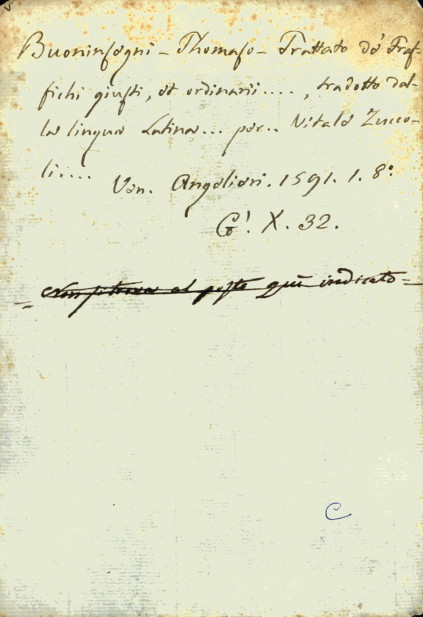 Buoninsegni - Thomaso - Trattato de' Traf-
fichi giusti, et ordinarii...., tradotto dal-
la lingua Latina... per.. Vitale Zucco-
li....
Ven. Angelieri. 1591. 1. 8°
G! X. 32.
Non si trova al posto quì indicato
C